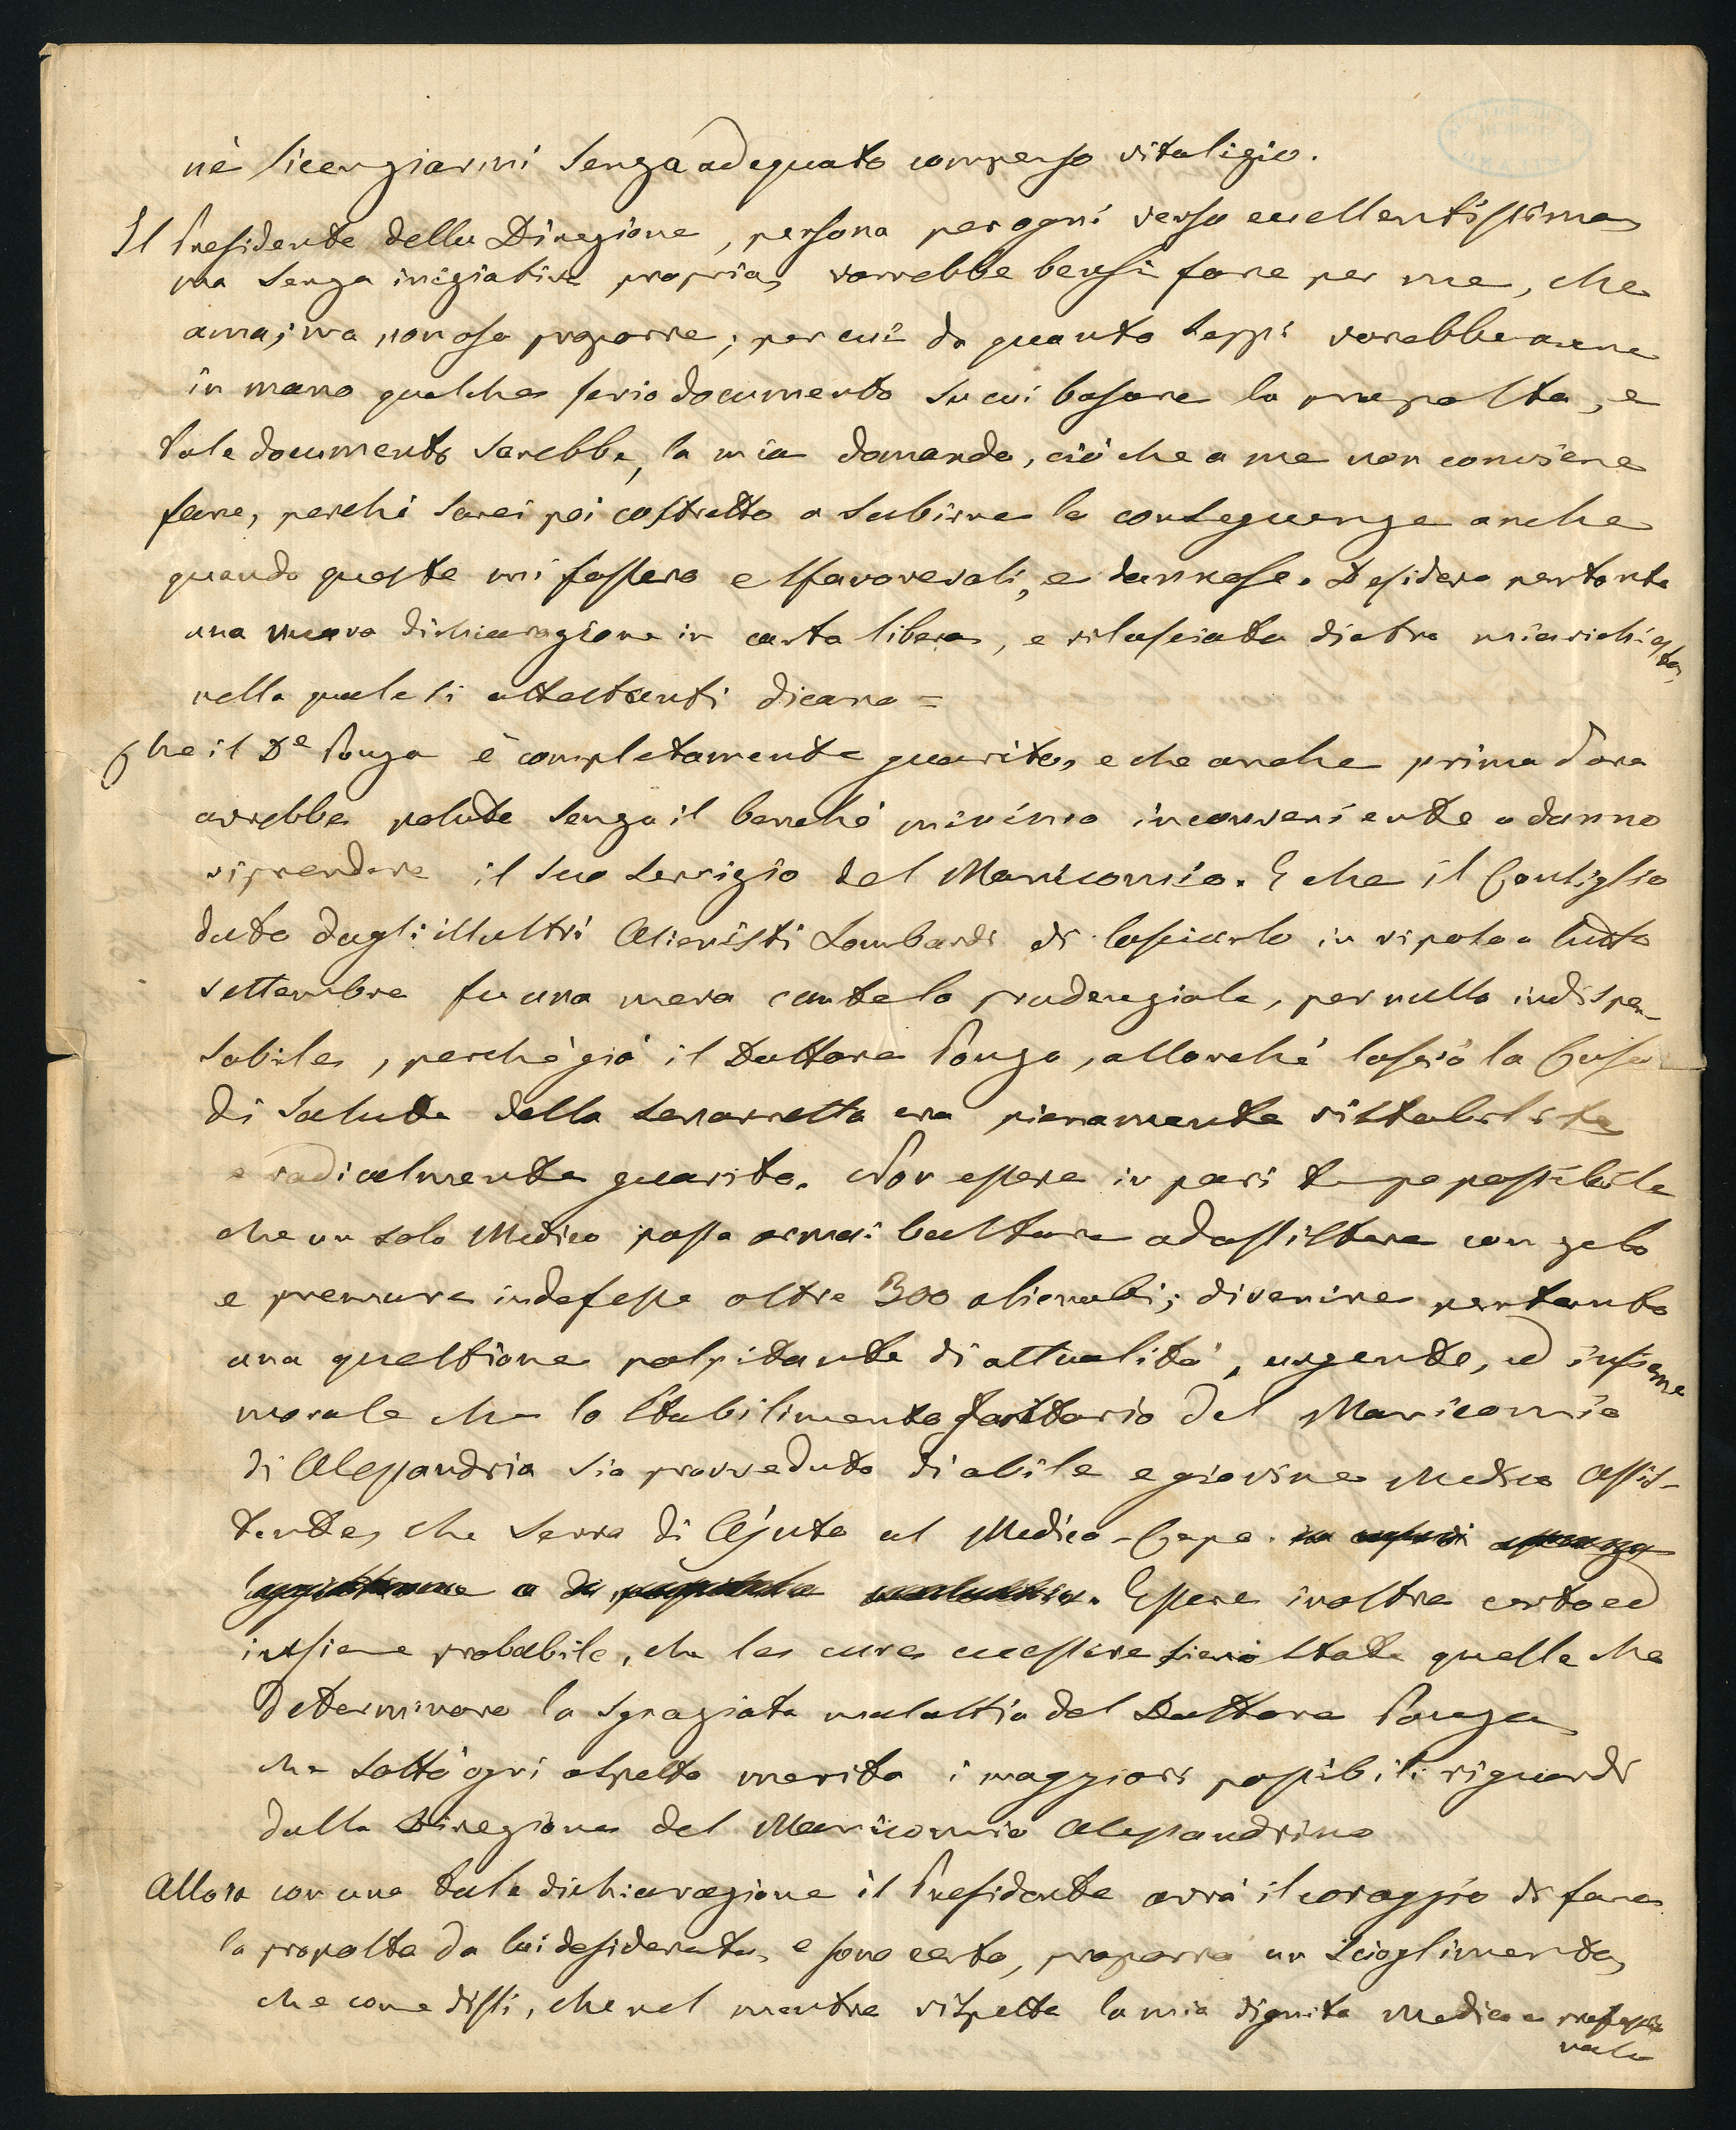 nè licenziarmi senza adeguato compenso vitalizio.
Il Presidente della Direzione, persona per ogni verso eccellentissima
ma senza iniziativa propria, vorrebbe bensì fare per me, che
ama; ma non osa proporre; per cui da quanto seppi vorebbe avere
in mano qualche serio documento su cui basare la proposta, e
tale documento sarebbe, la mia domanda, ciò che a me non conviene
fare, perchè sarei poi costretto a subirne le conseguenze anche
quando queste mi fossero e sfavorevoli, e dannose. Desidero pertanto
una nuova dichiarazione in carta libera, e rilasciata dietro mia richiesta,
nella quale si attestanti dicano =
Che il De Ponza è completamente guarito, e che anche prima d'ora
avrebbe potuto senza il benchè minimo inconveniente o danno
riprendere il suo servizio del Manicomio. E che il Consiglio
dato dagli illustri Alienisti Lombardi di lasciarlo in riposo a tutto
settembre fu una mera cautela prudenziale, per nulla indispen-
sabile, perchè già il Dottore Ponza, allorchè lasciò la Casa
di Salute della Senavretta era pienamente ristabilito
e radicalmente guarito. Non essere in pari tempo possibile
che un solo Medico possa ormai bastare ad assistere con zelo
e premure indefesse oltre 300 alienati; divenire pertanto
una questione palpitante di attualità, urgente, ed insieme
morale che lo Stabilimento Sanitario del Manicomio
di Alessandria sia provveduto di abile e giovine Medico Assis-
tente, che serva di Ajuto al Medico-Capo. in casi di assenza
legittima o di possibile malattia. Essere inoltre certo ed
insieme probabile, che le cure eccessive siano state quelle che
determinaro la sgraziata malattia del Dottore Ponza
che sott'ogni aspetto merita i maggiori possibili riguardi
dalla Direzione del Manicomio Alessandrino
Allora con una tale dichiarazione il Presidente avrà il coraggio di fare
la proposta da lui desiderata, e sono certo, proporrà un scioglimento,
che come dissi, che nel mentre rispetta la mia dignità Medica e professio
nale